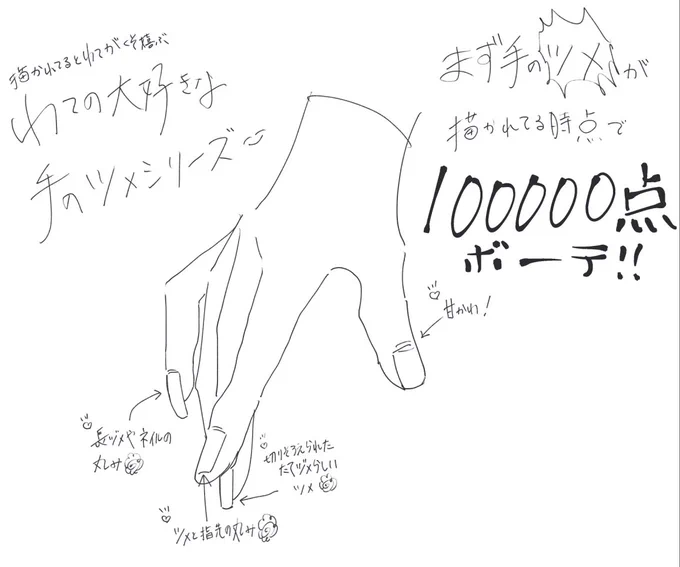 描かれてるとわてがくそ喜ぶ
わての大好きな
手のツメシリーズ
まず手のツメが
描かれてる時点で
100000点
ボーテ!!
甘かわ!
長ヅメやネイルの
丸み
切りそろえられた
たてヅメらしい
ツメ
ツメと指先の丸み